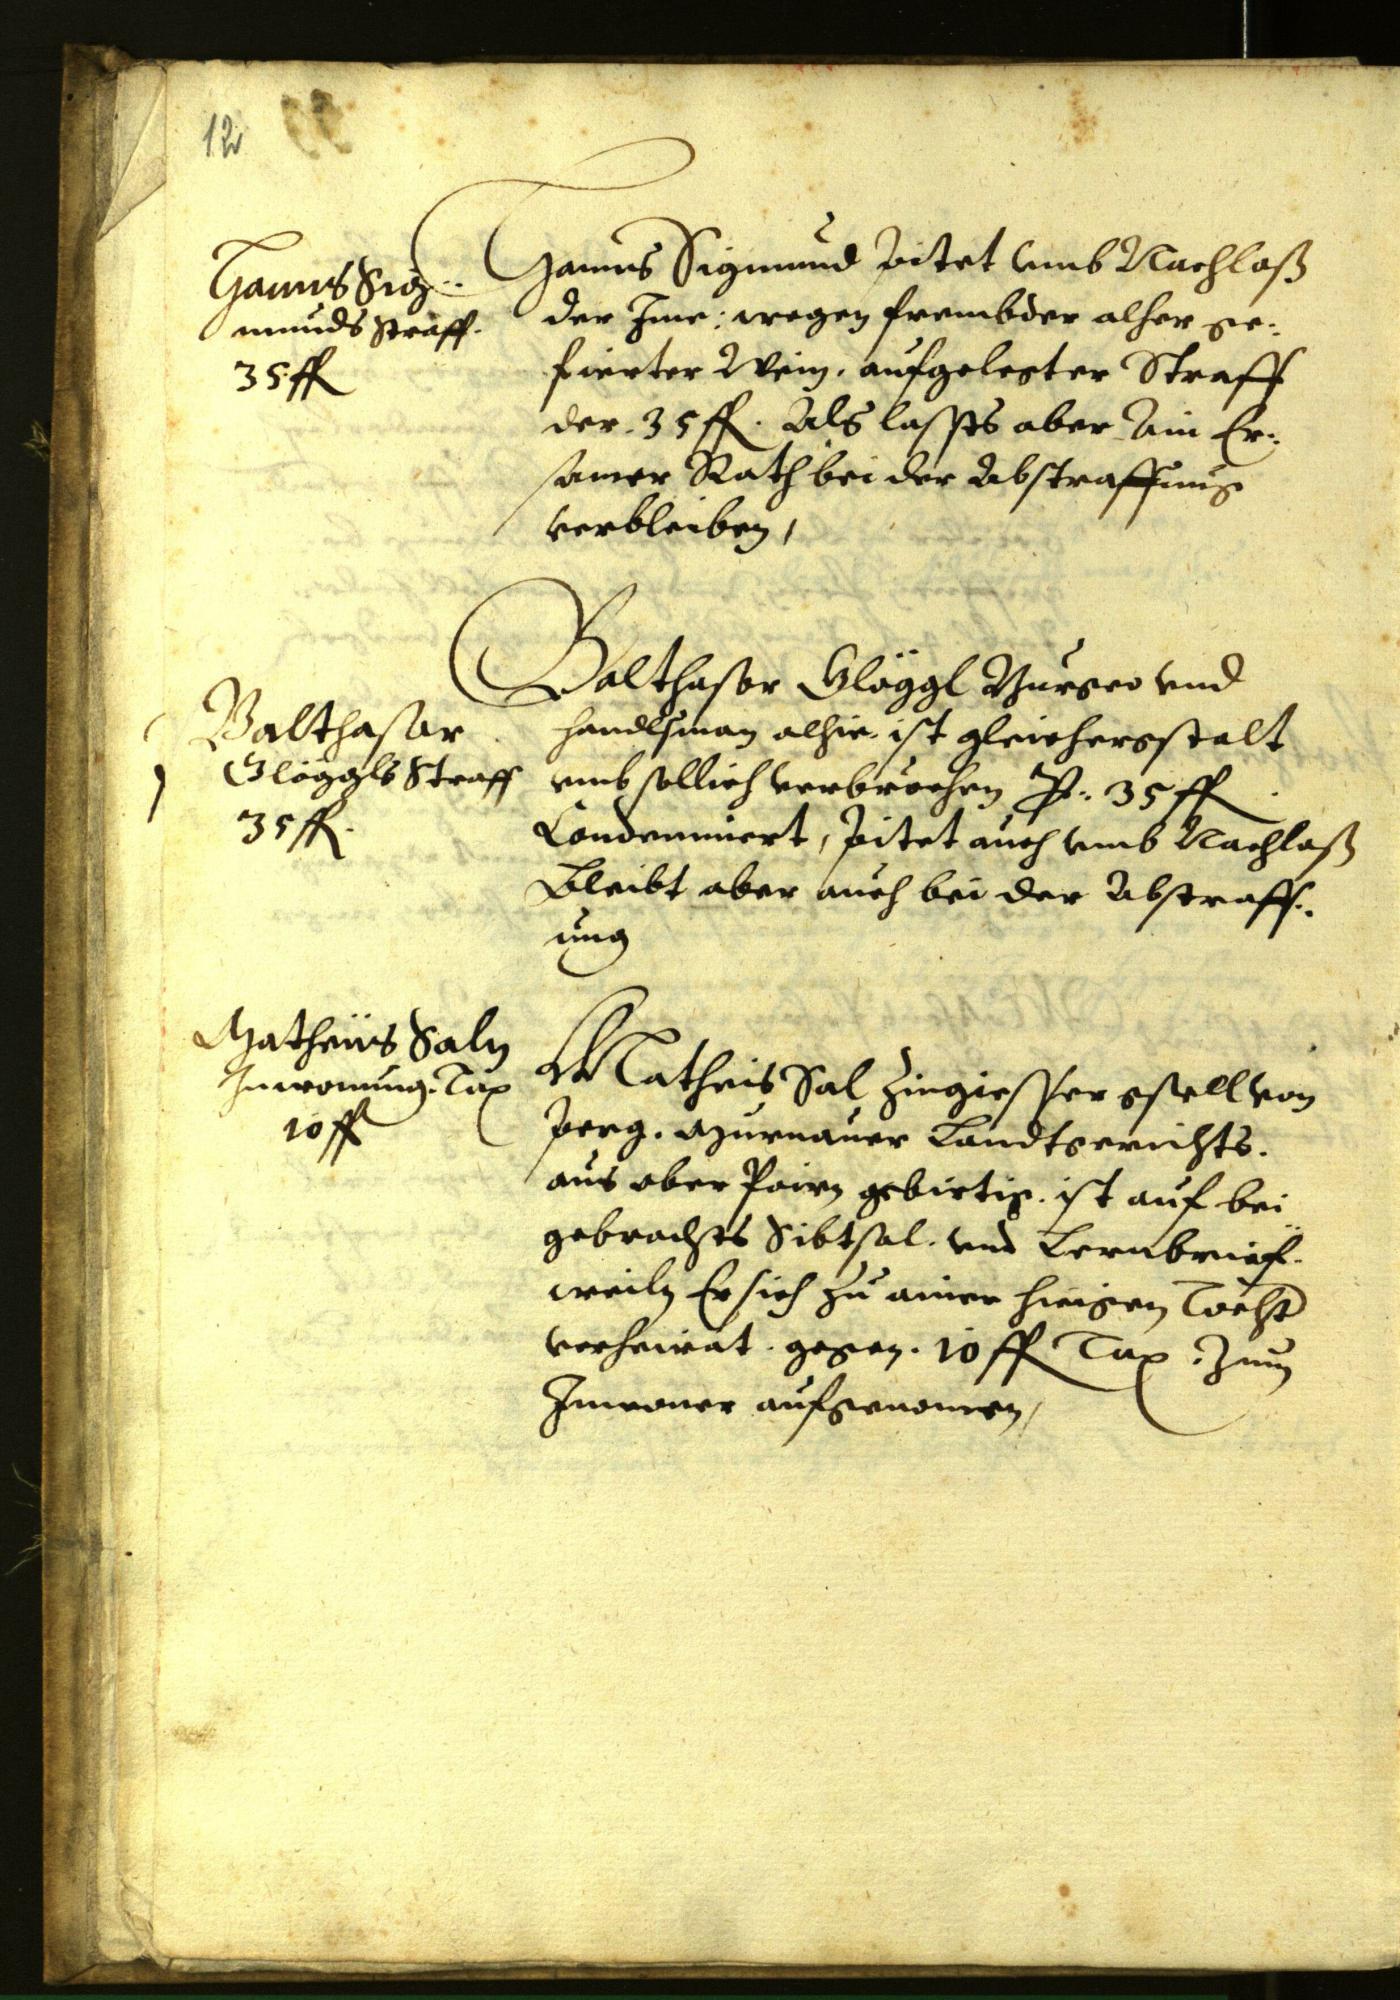 12
Hanns Sig¨
munds Straff.
35 fl
Hanns Sigmund pitet umb Nachlaß
der Ime: wegen frembder alher ge:
fierter Wein, aufgelegter Straff
der 35 fl. Als lassts aber Ain Er:
samer Rath bei der Abstraffung
verbleiben,
Balthasar
Glöggls Straff
35 fl.
Balthasar Glöggl Burger und
handlsman alhie ist gleichergstalt
umb sollich verbrochen P: 35 fl
Condemniert, pitet auch umb Nachlaß
Bleibt aber auch bei der Abstraff:
ung
Matheüs Saln
Inwonung Tax
10 fl
Matheis Sal Zingiesser gsell von
perg. Murnauer Landtgerichts.
aus ober Pairn gebirtig. ist auf bei
gebrachts Sibtsal. und Lernbrief.
weiln Er sich zu ainer hiesigen Tocht
verheirat. gegen. 10 fl Tax. Zum
Inwoner aufgenomen,